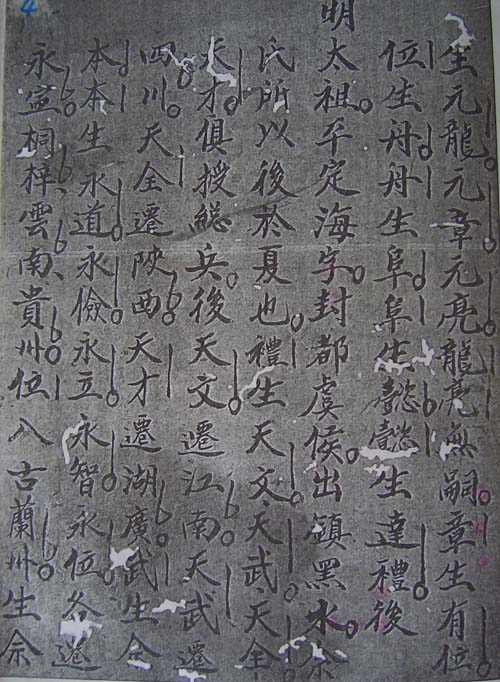 4
生元龍元章元亮龍亮無嗣章生有位
位生舟舟生阜阜生懿懿生達禮後
明太祖平定海宇封都虞侯出鎮黑水余
氏所以後於夏也禮生天文天武天全
天才俱授緫兵後天文遷江南天武遷
四川天全遷陝西天才遷湖廣武生余
本本生永道永儉永立永智永位各遷
永寧桐梓雲南貴州位入古藺州生余